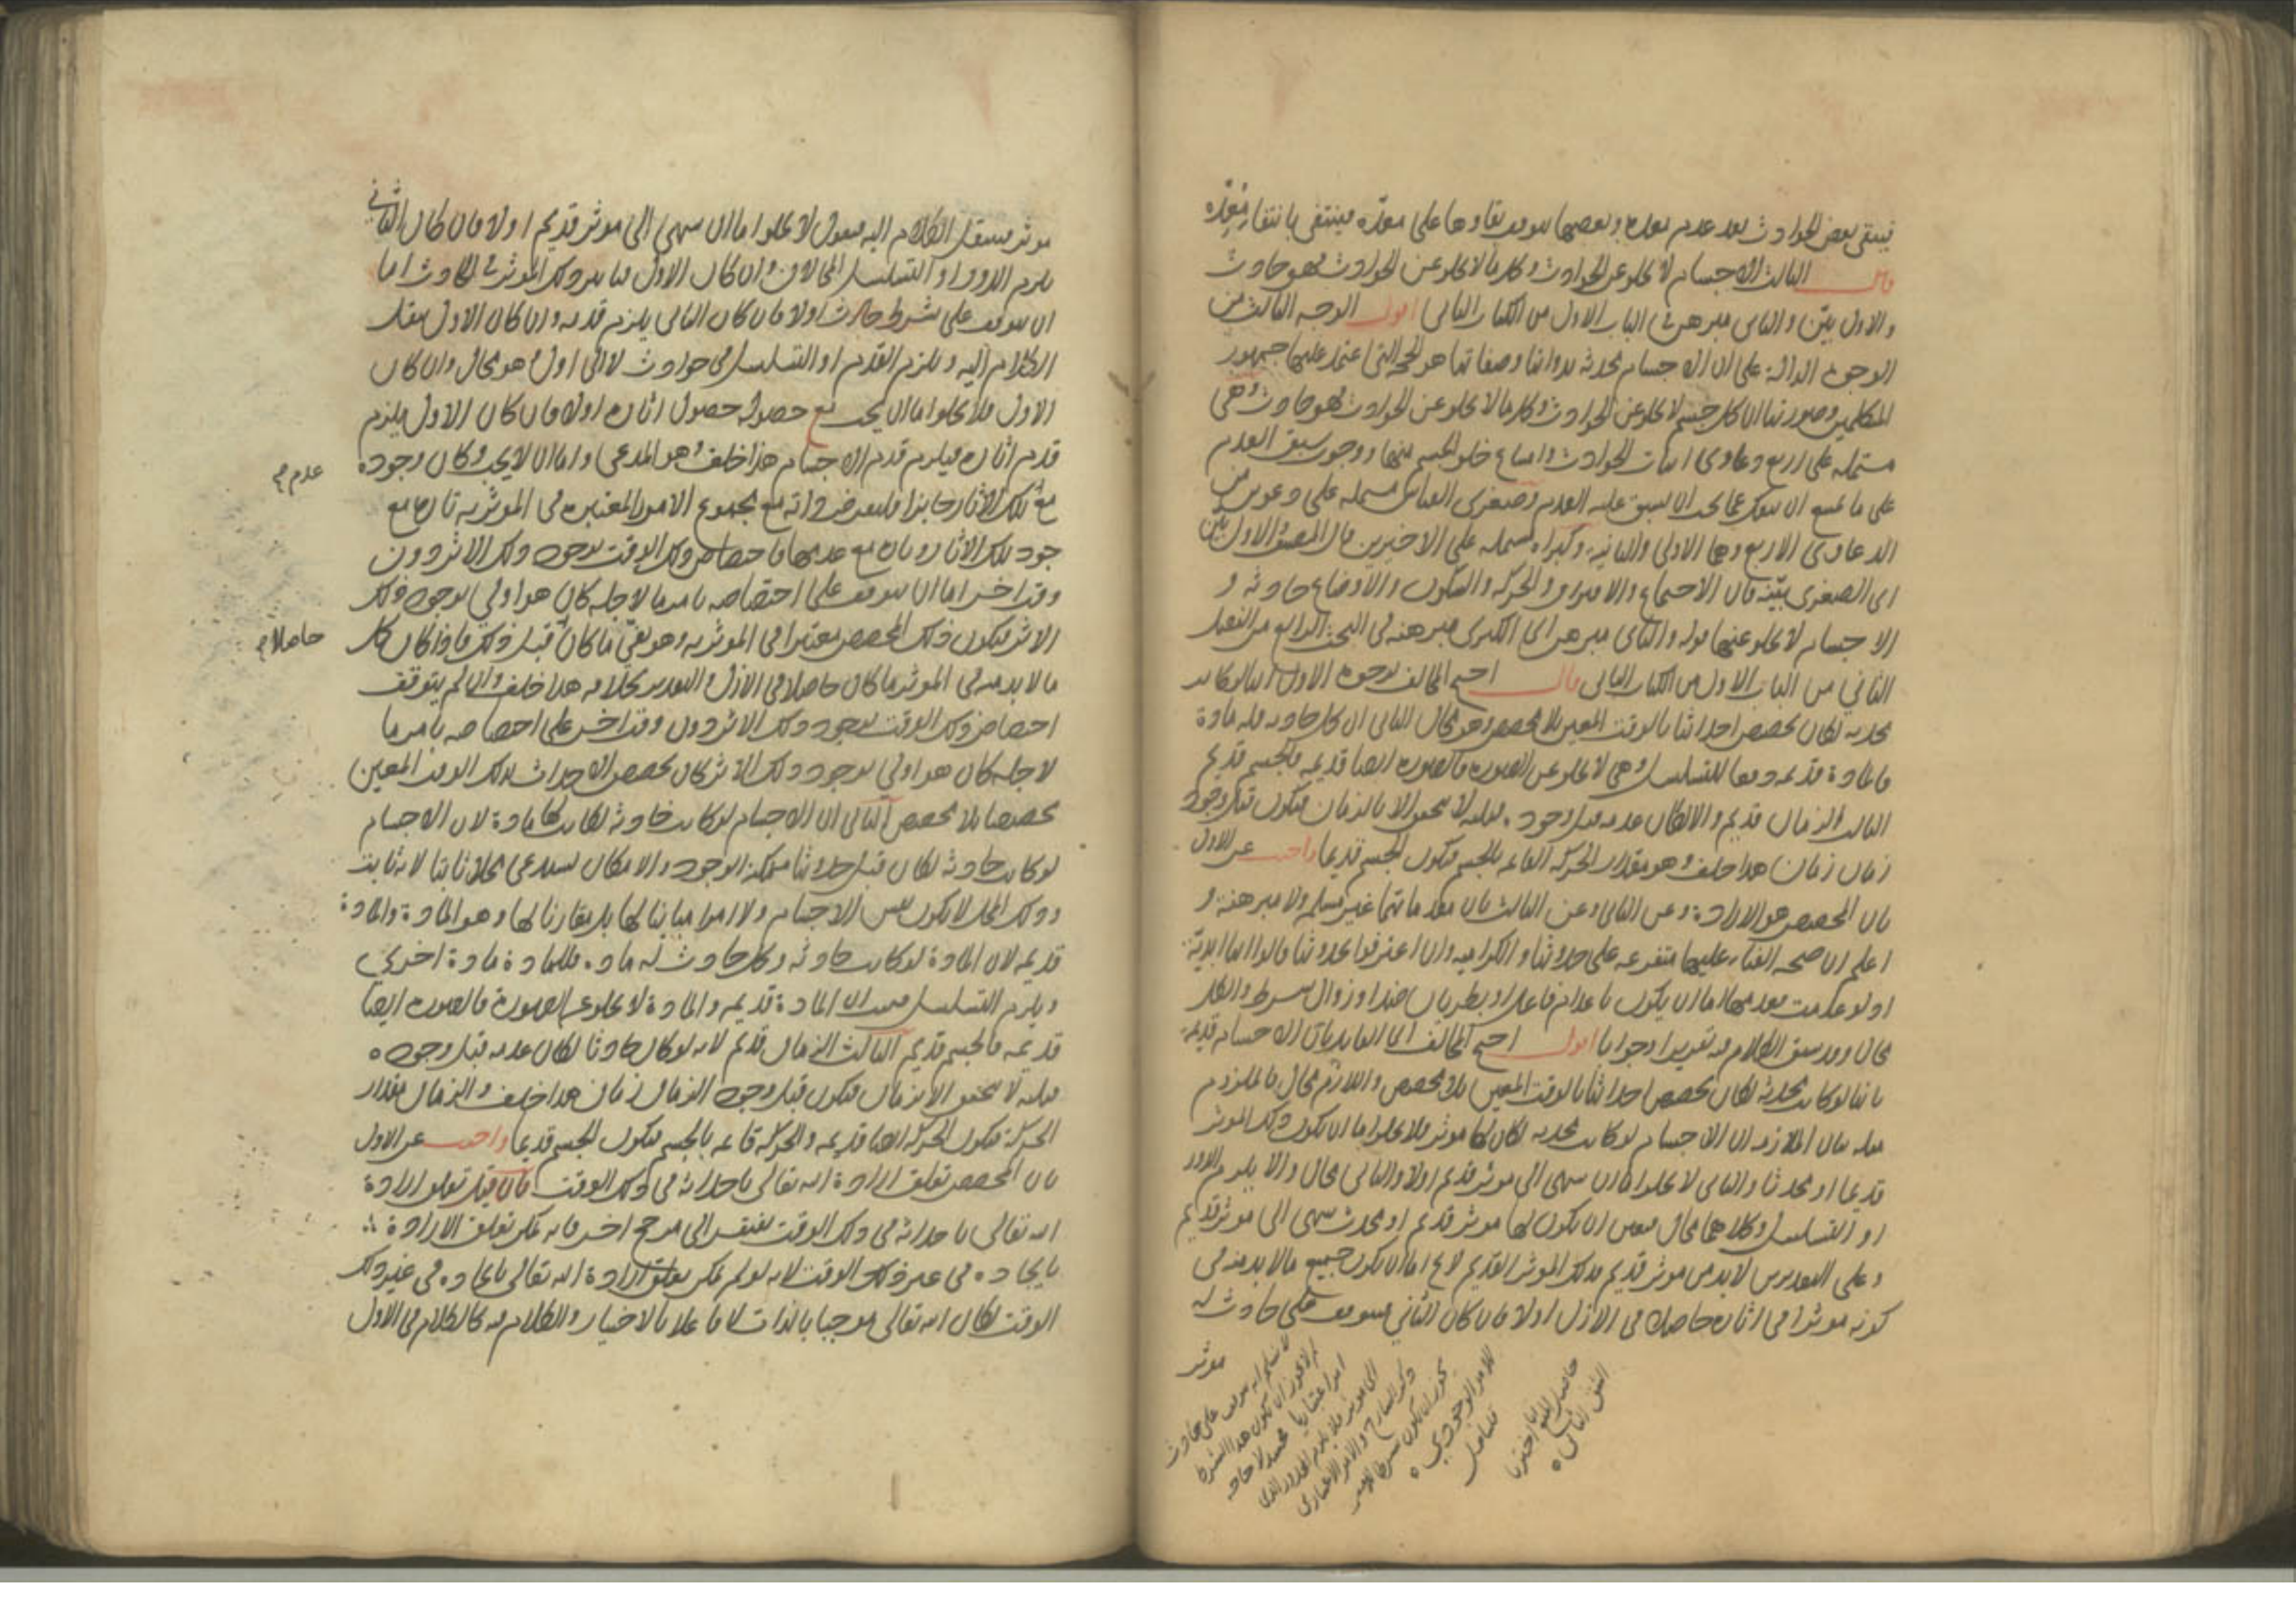 فيبقى بعض الحوادث بعد عدم معده وبعضها يتوقف بقاوها على معدّه فينتفى بانتفاء معدّه
قال الثالث الاجسام لا يخلو عن الحوادث وكل ما لا يخلو عن الحوادث فهو حادث
والاول بيّن والثانى مبرهن فى الباب الاول من الكتاب الثانى اقول الوجه الثالث من
الوجوه الدالة على ان الاجسام محدثة بذواتها وصفاتها هو الحجة التى اعتمد عليها جمهور
المتكلمين وصورتها ان كل جسم لا يخلو عن الحوادث وكل ما لا يخلو عن الحوادث فهو حادث وهى
مشتملة على اربع دعاوى اثبات الحوادث وامتناع خلو الجسم عنها ووجوب سبق العدم
على ما يمتنع ان ينفك عما يجب ان يسبق عليه العدم وصغرى القياس مشتملة على دعويين من
الدعاوى الاربع وهما الاولى والثانية وكبراه مشتملة على الاخيرين قال المصنف الاول بين
اى الصغرى بيّنة فان الاجتماع والافتراق والحركة والسكون والاوضاع حادثة و
الاجسام لا يخلو عنها قوله والثانى مبرهن اى الكبرى مبرهنة فى البحث الرابع من الفصل
الثانى من الباب الاول من الكتاب الثانى قال احتج المخالف بوجوه الاول انها لو كانت
محدثة لكان تخصص احداثها بالوقت المعين بلا مخصص وهو محال الثانى ان كل حادث فله مادة
فالمادة قديمة دفعا للتسلسل وهى لا يخلو عن الصورة فالصورة ايضا قديمة فالجسم قديم
الثالث الزمان قديم والا لكان عدمه قبل وجوده قبلية لا يتحقق الا بالزمان فيكون قبل وجود
زمان زمان هذا خلف وهو مقدار الحركة القائمة بالجسم فيكون الجسم قديما واجيب عن الاول
بان المخصص هو الارادة وعن الثانى وعن الثالث بان مقدماتهما غير مسلم ولا مبرهنة و
اعلم ان صحة الفناء عليها متفرعة على حدوثها والكرامية وان اعترفوا بحدوثها قالوا انها ابدية
اذ لو عدمت بعد فعدمها اما ان يكون باعدام فاعل او بطريان ضد او زوال شرط والكل
محال وقد سبق الكلام فيه تقريرا وجوابا اقول احتج المخالف اى القايل بان الاجسام قديمة
بانها لو كانت محدثة لكان تخصص احداثها بالوقت المعين بلا مخصص واللازم محال فالملزوم
مثله بيان الملازمة ان الاجسام لو كانت محدثة لكان لها موثر فلا يخلو اما ان يكون ذلك الموثر
قديما او محدثا والثانى لا يخلو اما ان ينتهى الى موثر قديم اولا والثانى محال والا يلزم الدور
او التسلسل وكلاهما محال فتعين ان يكون لها موثر قديم او محدث ينتهى الى موثر قديم
وعلى التقديرين لابد من موثر قديم فذلك الموثر القديم لا يخ اما ان يكون جميع ما لابد منه فى
كونه موثرا فى اثاره حاصلا فى الازل اولا فان كان الثانى فيتوقف على حادث له
موثر
لا نسلم انه يتوقف على حادث
لم لا يجوز ان يكون هذا الشرط
امرا اعتباريا فحينئذ لا حاجة
الى موثر فلا يلزم المحذور الذى
ذكره الشارح والامر الاعتبارى
يجوز ان يكون شرطا للامر
للامر الوجودى
فتأمل
موثر ينتقل الكلام اليه فنقول لا يخلو اما ان ينتهى الى موثر قديم اولا فان كان الثانى
يلزم الدور او التسلسل المحالان وان كان الاول فتاثير ذلك الموثر فى الحادث اما
ان يتوقف على شرط حادث اولا فان كان الثانى يلزم قدمه وان كان الاول ينقل
الكلام اليه ويلزم القدم او التسلسل فى حوادث لا الى اول وهو محال وان كان
الاول فلا يخلو اما ان يجب مع حصوله حصول اثاره اولا فان كان الاول فيلزم
قدم اثاره فيلزم قدم الاجسام هذا خلف وهو المدعى واما ان لا يجب وكان وجوده
عدم صح
مع تلك الاثار جايزا فليفرض ذاته مع مجموع الامور المعتبرة فى الموثرية تارة مع
جود تلك الاثار وتارة مع عدمها فاختصاص ذلك الوقت بوجود ذلك الاثر دون
وقت اخر اما ان يتوقف على اختصاصه بامر ما لاجله كان هو اولى بوجود ذلك
الاثر فيكون ذلك المخصص معتبرا فى الموثرية وهو نفى ما كان قبل ذلك فاذا كان كل
حاصلا صح
ما لابد منه فى الموثر ما كان حاصلا فى الازل والتقدير بخلافه هذا خلف وان لم يتوقف
اختصاص ذلك الوقت بوجود ذلك الاثر دون وقت اخر على اختصاصه بامر ما
لاجله كان هو اولى بوجود ذلك الاثر كان تخصص الاحداث بذلك الوقت المعين
تخصصا بلا مخصص الثانى ان الاجسام لو كانت حادثة لكانت لها مادة لان الاجسام
لو كانت حادثة لكان قبل حدوثها ممكنة الوجود والامكان يستدعى محلا ثابتا لانه ثابت
وذلك المحل لا يكون نفس الاجسام ولا امرا مباينا لها بل مقارنا لها وهو المادة والمادة
قديمة لان المادة لو كانت حادثة وكل حادث له مادة فللمادة مادة اخرى
ويلزم التسلسل فثبت ان المادة قديمة والمادة لا يخلو عن الصورة فالصورة ايضا
قديمة فالجسم قديم الثالث الزمان قديم لانه لو كان حادثا لكان عدمه قبل وجوده
قبلية لا يتحقق الا بزمان فيكون قبل وجود الزمان زمان هذا خلف والزمان مقدار
الحركة فيكون الحركة ايضا قديمة والحركة قائمة بالجسم فيكون الجسم قديما واجيب عن الاول
بان المخصص تعلق ارادة الله تعالى باحداثه فى ذلك الوقت فان قيل تعلق ارادة
الله تعالى باحداثه فى ذلك الوقت يفتقر الى مرجح اخر فانه يمكن تعلق الارادة
بايجاده فى غير ذلك الوقت لانه لو لم يمكن تعلق ارادة الله تعالى بايجاده فى غير ذلك
الوقت لكان الله تعالى موجبا بالذات لا فاعلا بالاختيار والكلام فيه كالكلام فى الاول